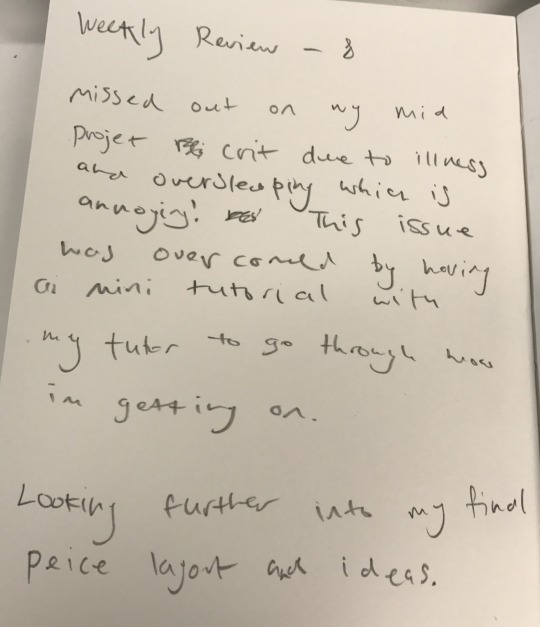 Weekly Review - 8
Missed out on my mid
projet crit due to illness
and oversleeping which is
annoying! This issue
was over comed by having
a mini tutorial with
my tutor to go through how
im getting on.
Looking further into my final
peice layout and ideas.